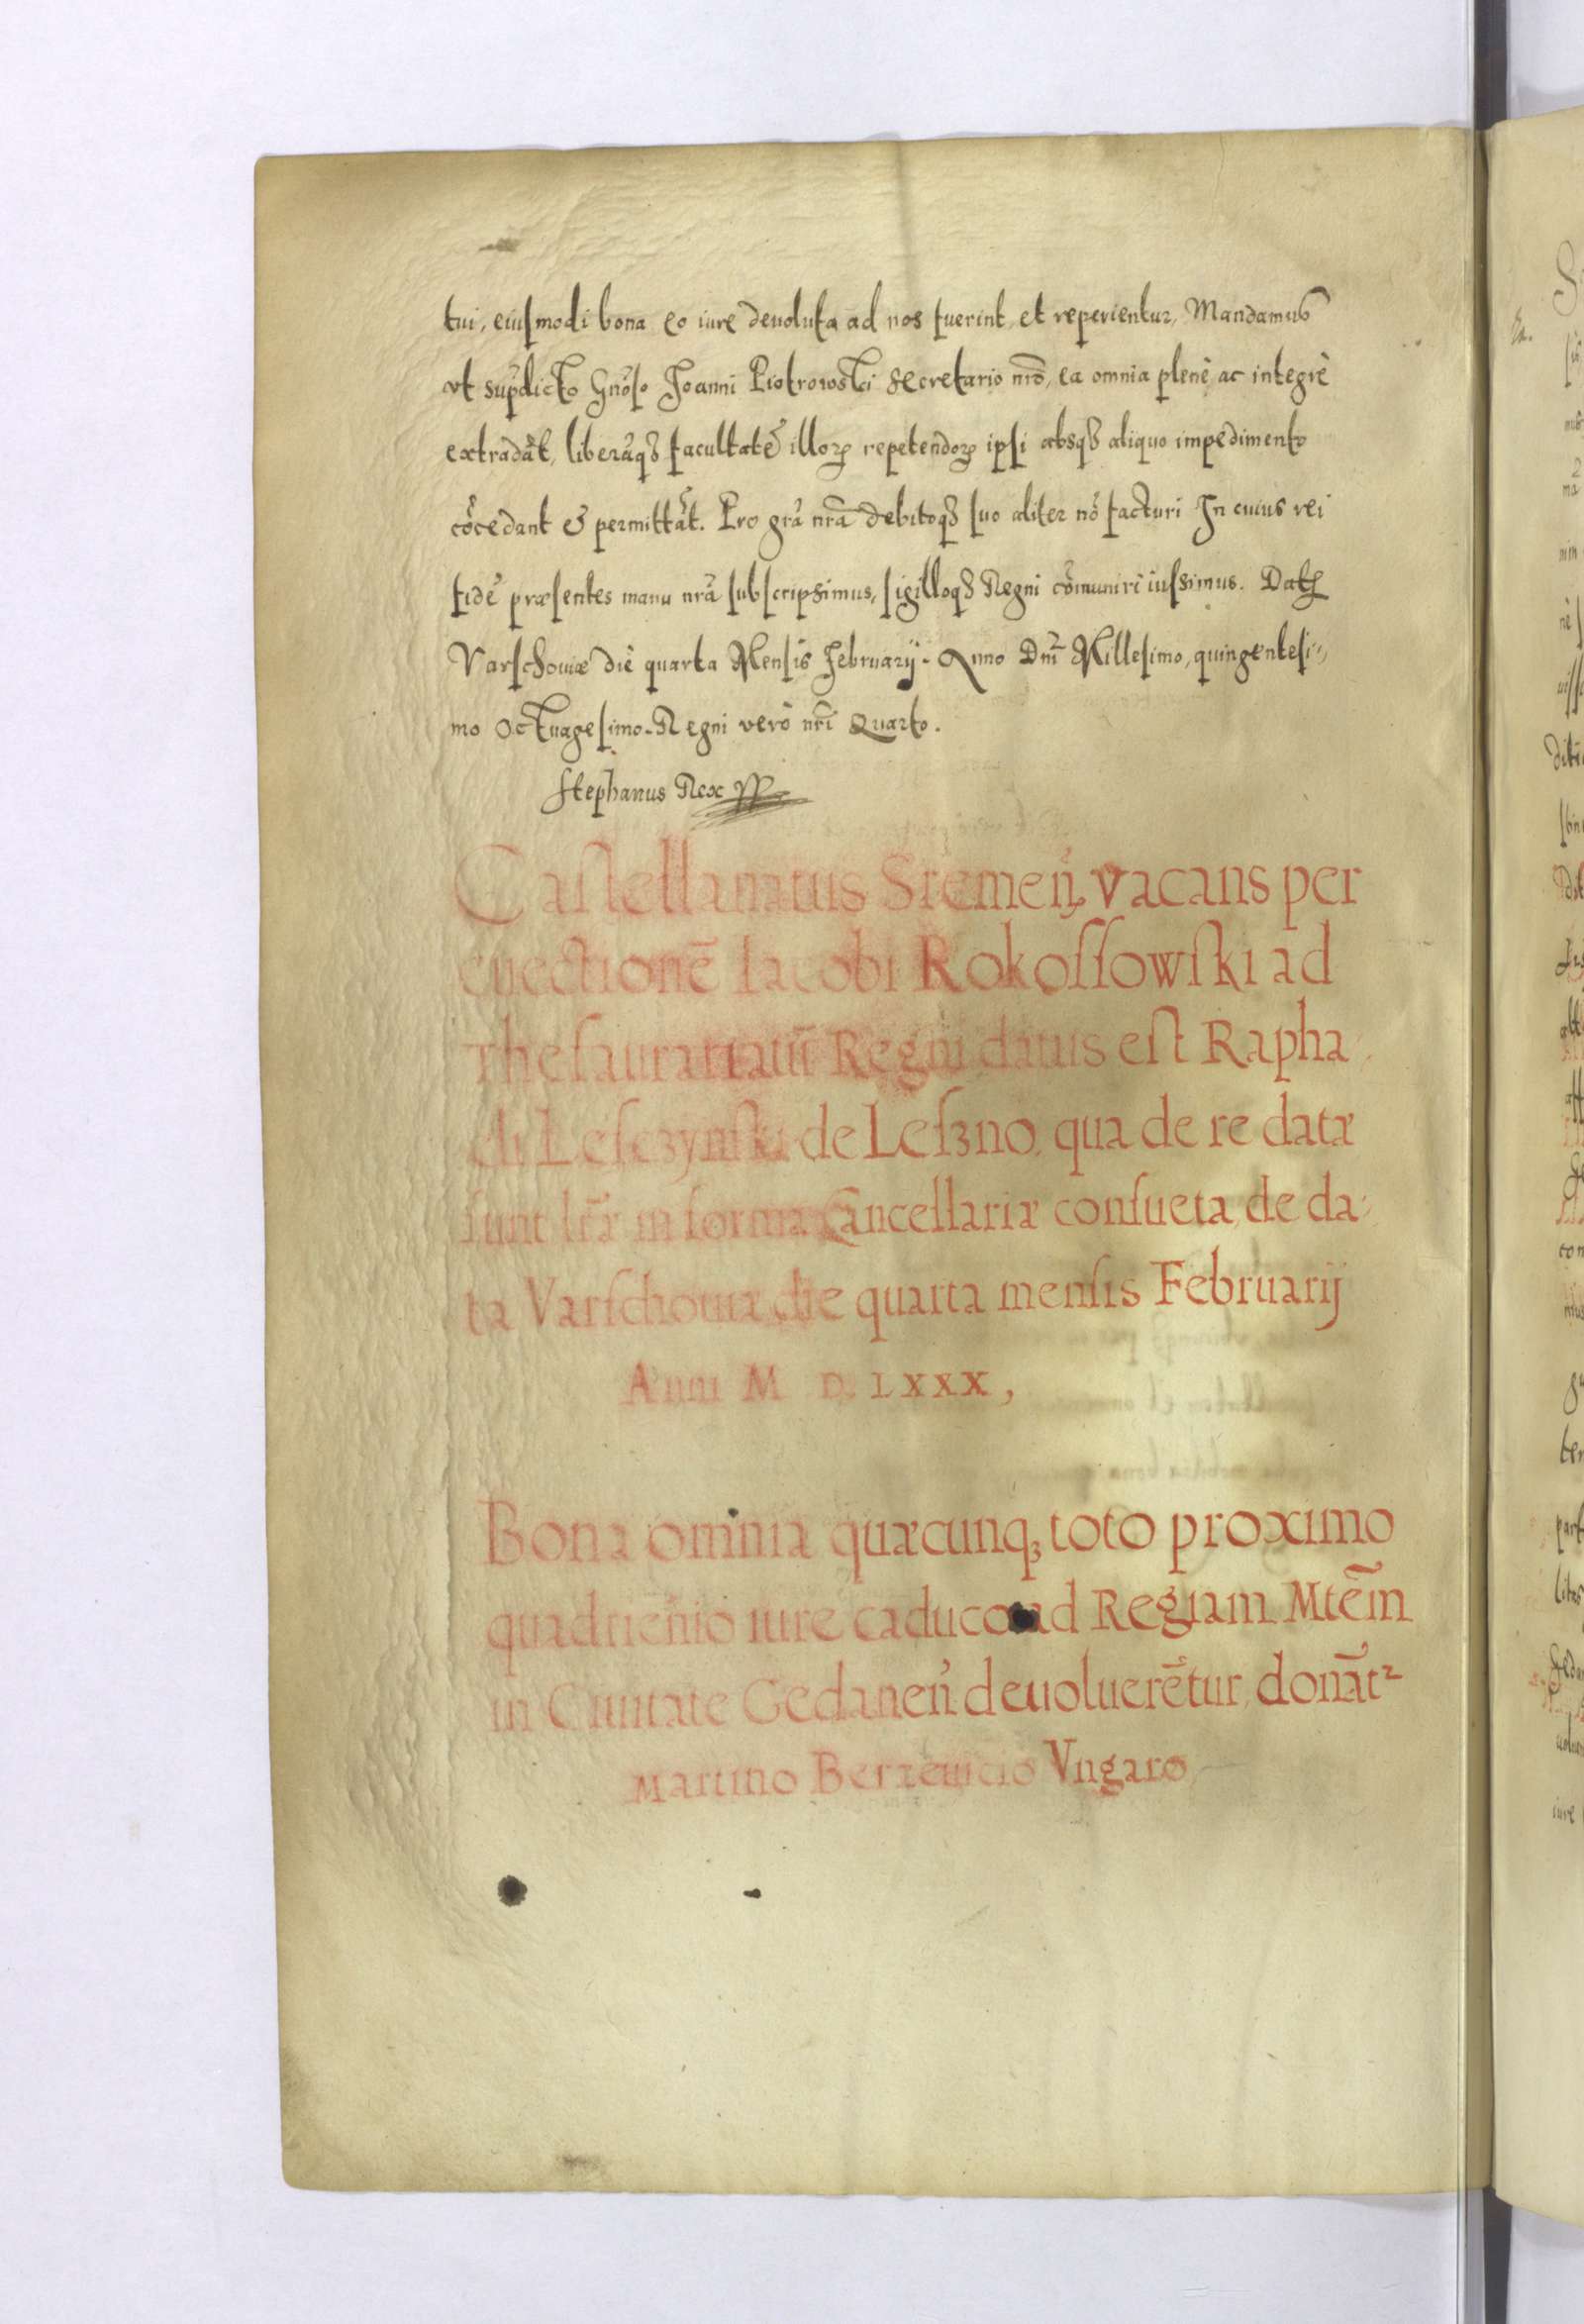 tui, eiusmodi bona eo iure deuoluta ad nos fuerint, et reperientur, Mandamus
vt sup̃dicto Gn̄oso Joanni Piotrowski Secretario nr̄o, ea omnia plenè, ac integrè
extradāt, liberāq₃ facultatē illoꝝ repetendoꝝ ipsi absq₃ aliquo impedimento
cōcedant & permittāt. Pro gr̄a nr̄a debitoq₃ suo aliter nō facturi In cuius rei
fidē præsentes manu nr̄a subscripsimus, sigilloq₃ Regni cōmuniri iussimus. Datꝭ
Varschouiæ die quarta Mensis Februarij. Anno Dn̄i Millesimo, quingentesi-
mo Octuagesimo. Regni verò nr̄i Quarto.
Stephanus Rex
Castellanatus Sremeñ vacans per
euectionē Iacobi Rokossowski ad
Thesaurariatū Regni datus est Rapha
eli Lesczynski de Leszno, qua de re datæ
sunt lr̄æ in forma Cancellariæ consueta, de da
ta Varschouiæ die quarta mensis Februarij
Anni M D. LXXX,
Bona omnia quæcunq₃ toto proximo
quadrieñio iure caduco ad Regiam Mtēm
in Ciuitate Gedaneñ deuoluerētur, donāt²
Martino Berzeuicio Vngaro